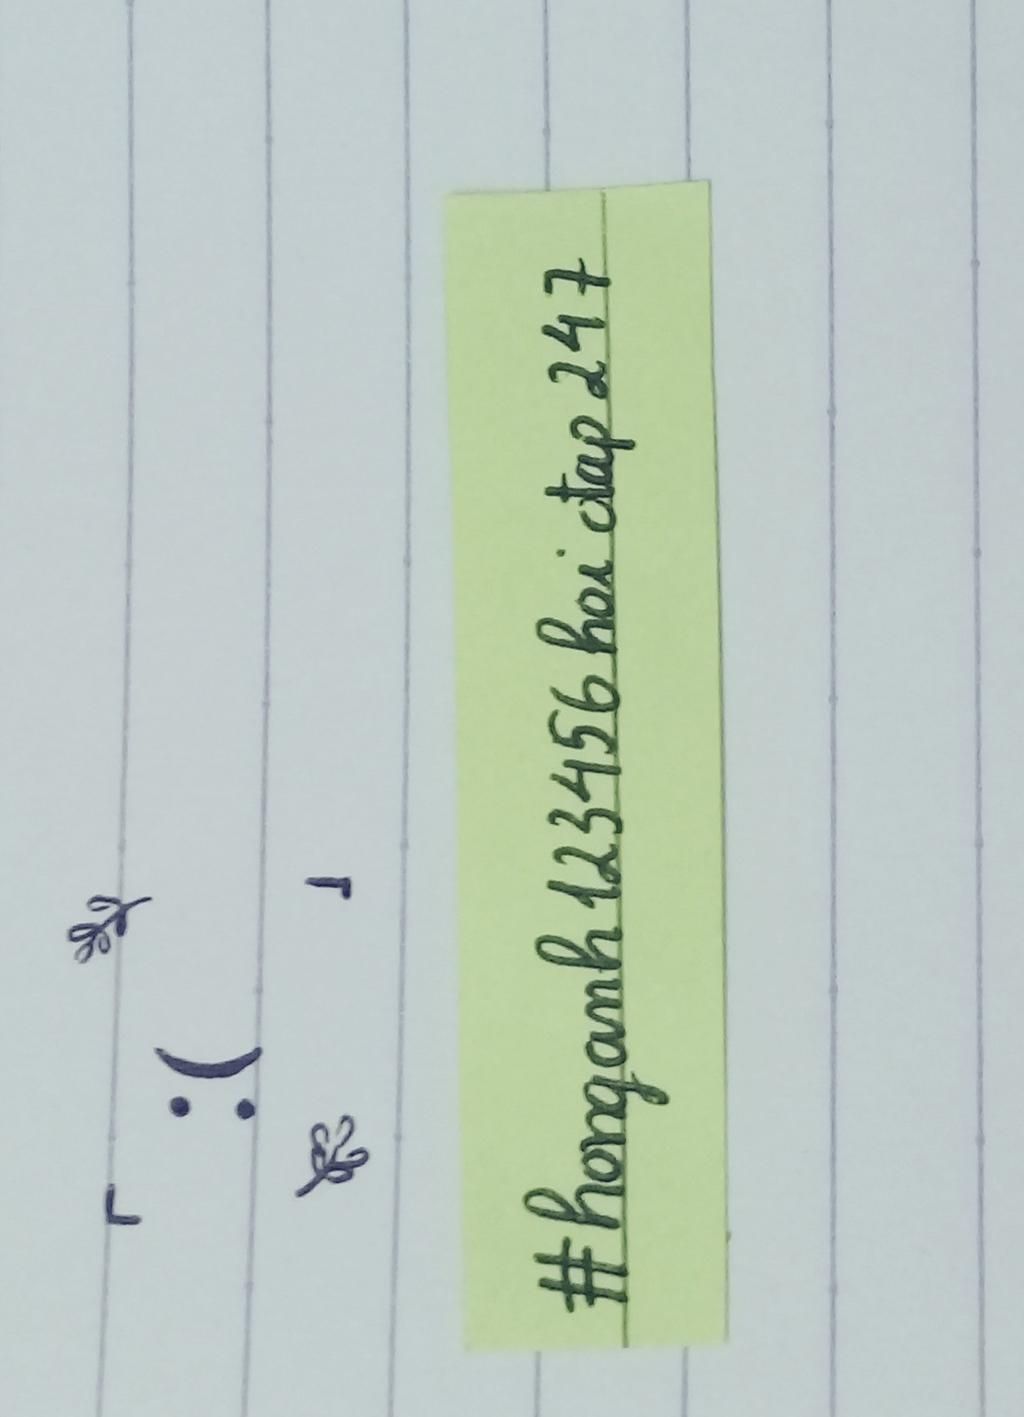 :(
#honganh123456hoidap247